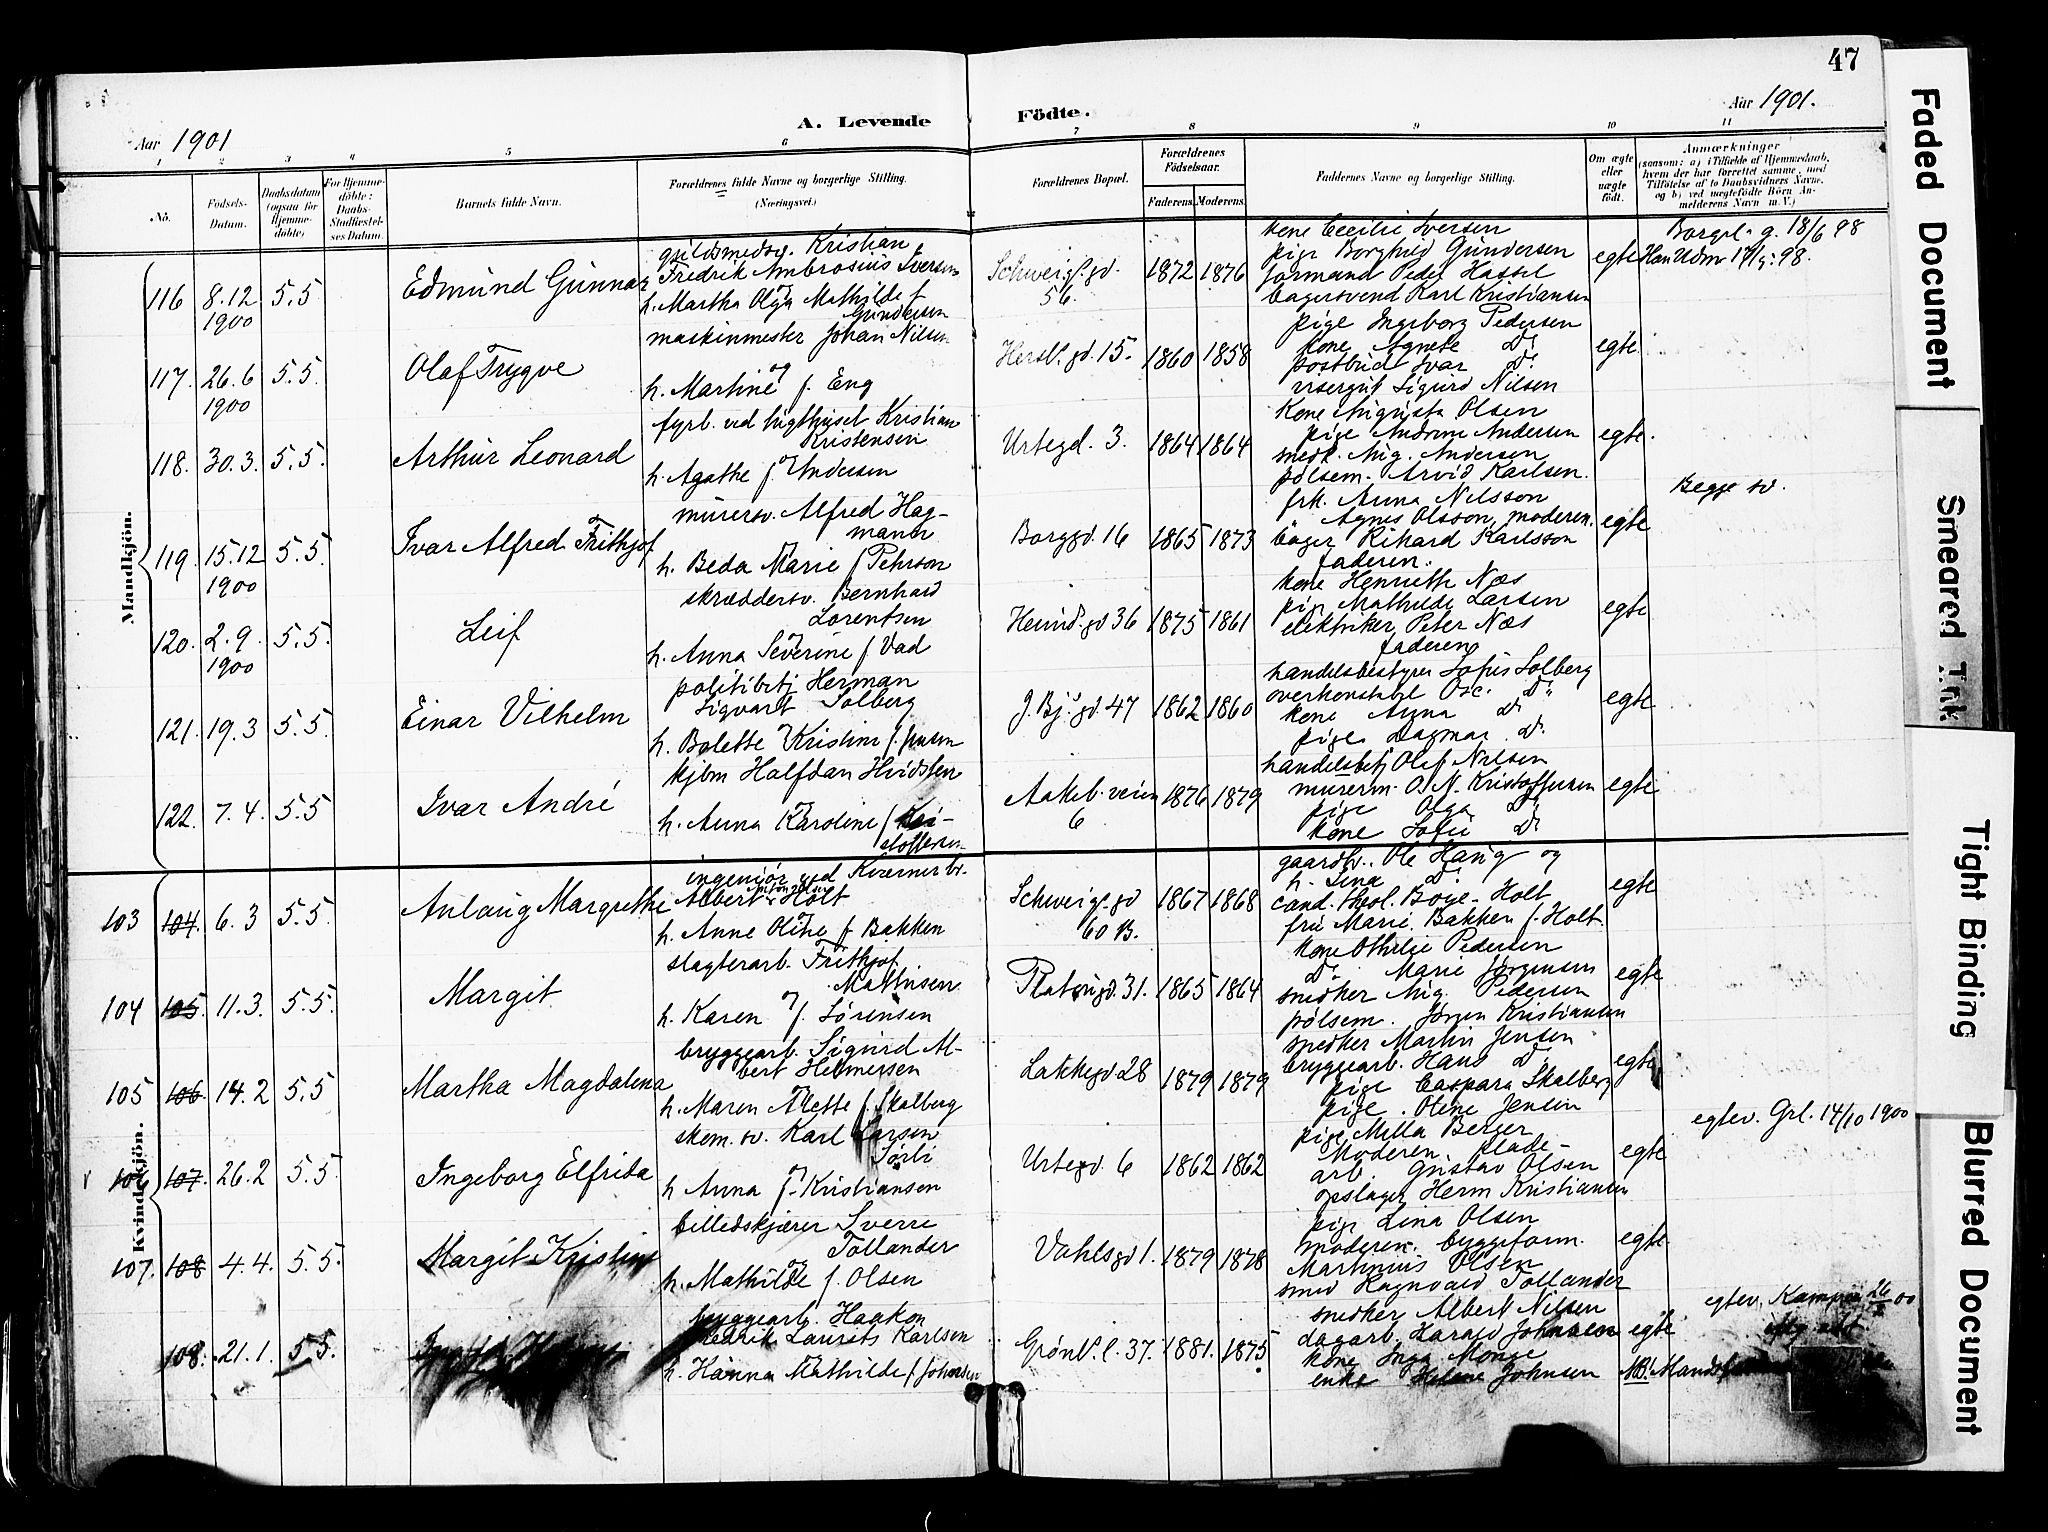 47
Aar 1901
A. Levende
Födte.
Aar 1901.
1 2 3 4 5 6 7 8 9 10 11
Nö.
Födsels-Datum.
Daabsdatum (ogsaa for Hjemme-döbte)
For Hjemme-döbte: Daabs-Stadfæstel-ses Datum.
Barnets fulde Navn.
Forældrenes fulde Navne og borgerlige Stilling.
(Næringsvei.)
Forældrenes Bopæl.
Forældrenes Födselsaar.
Faderens. Moderens.
Faddernes Navne og borgerlige Stilling.
Om ægte eller uægte födt.
Anmærkninger
(saasom: a) i Tilfælde af Hjemmedaab, hvem der har forrettet samme, med Tilföielse af to Daabsvidners Navne, og b) ved uægtefödte Börn An-melderens Navn m. V.)
Mandkjön.
116 8.12 1900 5.5 Edmund Gunnar
Kristian
Fredrik Ambrosius Iversen
og
h. Martha Olga Mathilde f
Gundersen
Schweigs. gd. 56. 1872 1876
kone Cecilie Iversen
pige Borghild Gundersen
formand Peder Hassel
bagersvend Karl Kristiansen
egte
Borgel. g. 18/6 98
117. 26.6 1900 5.5. Olaf Trygve
maskinmester Johan Nilsen
og
h. Martine f. Eng
Hersl. gd. 15. 1860 1858
pige Ingeborg Pedersen
kone Agnete Do
postbud Ivar Do
visergut Sigurd Nilsen
egte
118. 30.3. 5.5. Arthur Leonard
fyrb. ved Kristian
Kristensen
og
h. Agathe f. Andersen
Urtegd. 3. 1864 1864
Kone Augusta Olsen
pige Andersen
snedk. Aug. Andersen
pølsem. Arvid Karlsen.
egte.
119. 15.12 1900 5.5. Ivar Alfred Frithjof
murersv. Alfred Hag-
og
h. Beda Marie f Pehrson
Borggd. 16 1865 1873
frk. Anna Nilsson
Agnes Olsson, moderen.
bager Rikard Karlsson
faderen.
egte
Begge sv.
120. 2.9. 1900 5.5. Leif
skræddersv. Bernhard
Lorentsen
og
h. Anna Severine f Vad
Heimd. gd 36 1875 1861
kone Næs
pige Mathilde Larsen
elektriker Peter Næs
faderen
egte
121. 19.3 5.5. Einar Vilhelm
politibetj Herman
Sigvart Solberg
og
h. Bolette Kristine f.
J. Bj. gd. 47 1862 1860
handelsbestyrer Sofus Solberg
overkonstabel Osc. Do
kone Anna Do
pige Dagmar Do
egte
122. 7.4. 5.5 Ivar André
kjbm Halfdan Hvidsten
og
h. Anna Karoline f
Aakeb. veien 6 1876 1879
handelsbetj Olaf Nilsen
murerm. O. N. Kristoffersen
pige Olga Do
kone Sofie Do
egte
Kvindekjön.
103 104. 6.3 5.5. Anlaug Margrethe
ingeniør ved Kværner br.
Albert Holt
h. Anne Oline f Bakken
Schweigs. gd 60 B. 1867 1868
gaardbr. Ole Haug og
h. Lina Do
cand. theol. Boye-Holt
fru Marie Bakken f. Holt
egte
104 105. 11.3. 5.5. Margit
slagterarb. Frithjof
Mathisen
og
h. Karen f. Sørensen
Platougd. 31. 1865 1864
kone Othilie Pedersen
Do Marie Jørgensen
snedker Aug. Pedersen
pølsem. Jørgen Kristiansen
egte
105 106. 14.2 5.5 Martha Magdalena
bryggearb. Sigurd Al-
bert Helmersen
og
h. Maren Alette f. Skalberg
Lakkegd 28 1879 1879
snedker Martin Jensen
bryggearb. Hans Do
pige Caspara Skalberg
pige Oline Jensen
egte
106 107. 26.2 5.5 Ingeborg Elfrida
skom. sv. Karl Larsen
og
h Anna f. Kristiansen
Urtegd. 6 1862 1862
pige Milla Berger
Moderen.
arb. Gustav Olsen
opslager Herm Kristiansen
egte
egtev. Grl. 14/10 1900
107. 108 4.4. 5.5. Margit Kristine
billedskjærer Sverre
Tollander
og
h. Mathilde f. Olsen
Vahlsgd 1. 1879 1878
pige Lina Olsen
moderen.
Martinius Olsen
smed Ragnvald Tollander
egte
108. 21.1. 5.5.
bryggearb. Haakon
Fredrik Laurits Karlsen
og
h. Hanna Mathilde f Johnsen
Grønl. l. 37. 1881. 1875
snedker Albert Nilsen
dagarb. Harald Johnsen
kone Inga Monge
enke Helene Johnsen
egte
egtev. Kampen
Faded Document
Smeared Ink
Tight Binding
Blurred Document